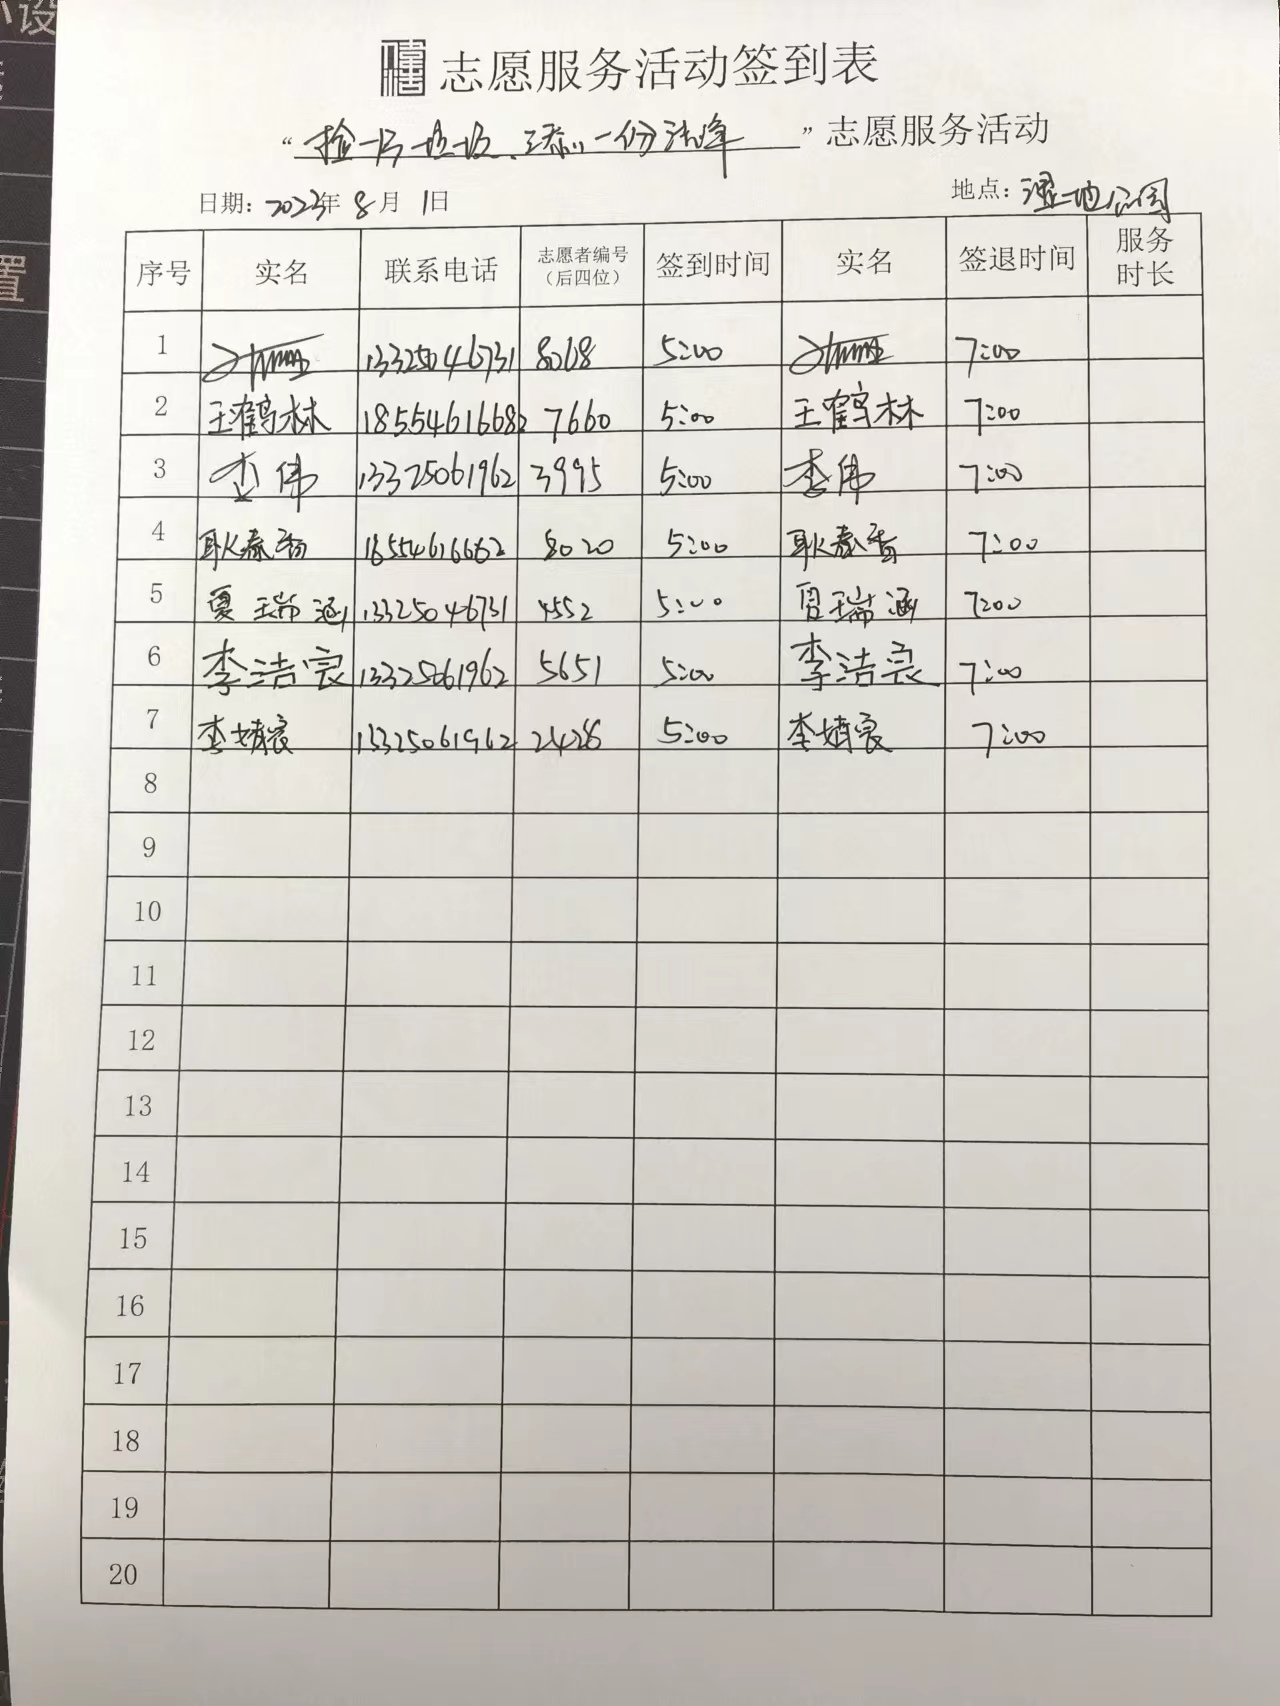 小设
置
志愿服务活动签到表
“捡一片垃圾、添一份洁净”志愿服务活动
日期：2023年 8月 1日 地点：湿地公园
序号 实名 联系电话 志愿者编号（后四位） 签到时间 实名 签退时间 服务时长
1 13325046731 8068 5:00 7:00
2 王鹤林 18554616682 7660 5:00 王鹤林 7:00
3 李伟 13325061962 3995 5:00 李伟 7:00
4 耿春香 18554616682 8020 5:00 耿春香 7:00
5 夏瑞涵 13325046731 4552 5:00 夏瑞涵 7:00
6 李洁宸 13325061962 5651 5:00 李洁宸 7:00
7 李婧宸 13325061962 2428 5:00 李婧宸 7:00
8
9
10
11
12
13
14
15
16
17
18
19
20